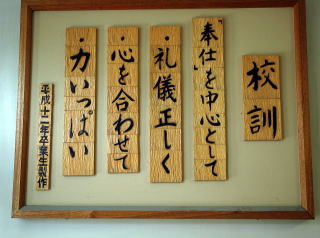 校訓
「奉仕」を中心として
・礼儀正しく
・心を合わせて
・力いっぱい
平成十二年卒業生製作